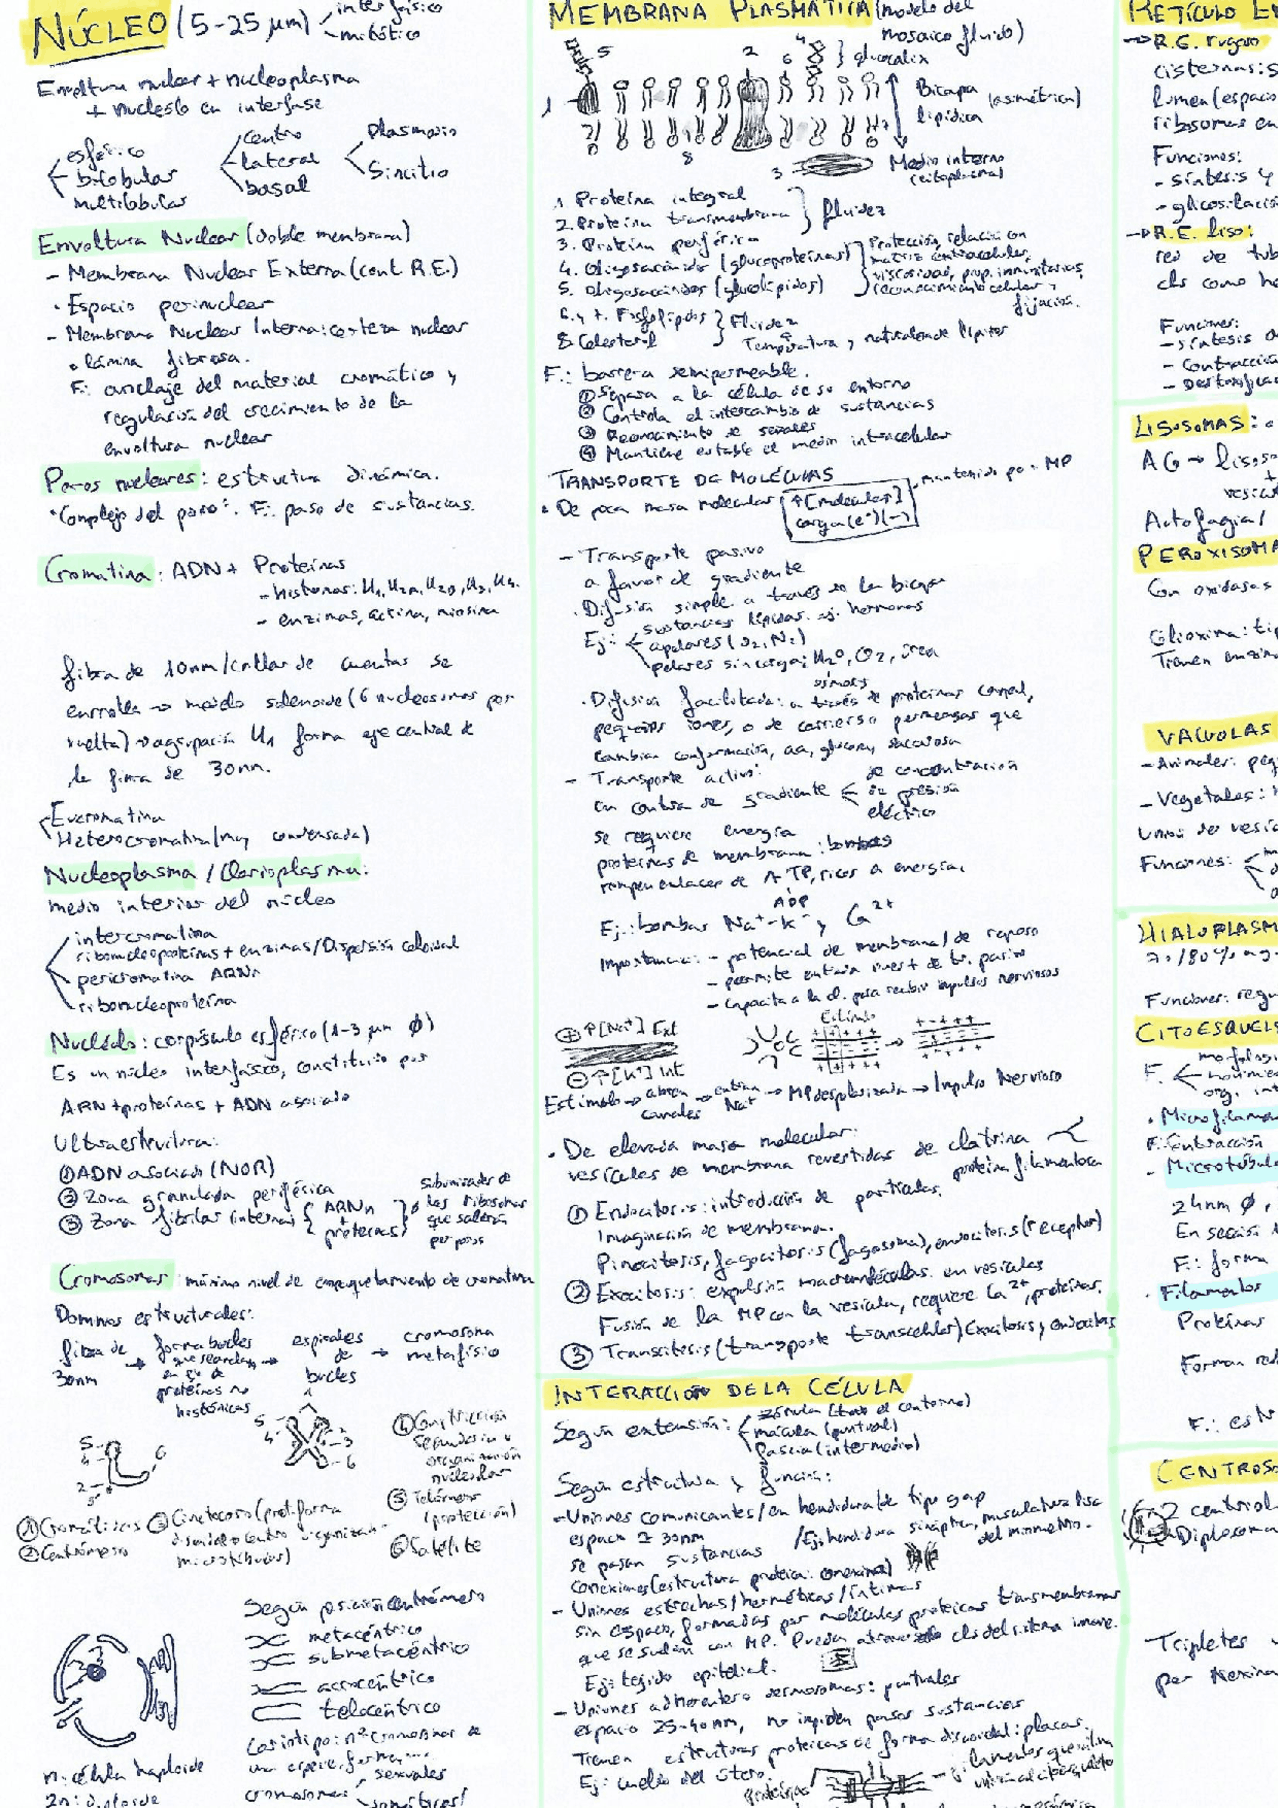 NÚCLEO (5-25 µm) interfásico
mitótico
Envoltura nuclear + nucleoplasma
+ nucleolo en interfase
esférico
bilobular
multilobular
centro
lateral
basal
Plasmodio
Sincitio
Envoltura Nuclear (doble membrana)
- Membrana Nuclear Externa (cont. R.E.)
· Espacio perinuclear
- Membrana Nuclear Interna: corteza nuclear
o lámina fibrosa.
F: anclaje del material cromático y
regulación del crecimiento de la
envoltura nuclear
Poros nucleares: estructura dinámica.
"Complejo del poro". F: paso de sustancias.
Cromatina: ADN + Proteínas
- histonas: H1, H2A, H2B, H3, H4.
- enzimas, actina, miosina
fibra de 10nm/collar de cuentas se
enrolla → modelo solenoide (6 nucleosomas por
vuelta) → agrupación H1 forma eje central de
la fibra de 30nm.
Eucromatina
Heterocromatina (muy condensada)
Nucleoplasma / Carioplasma:
medio interior del núcleo
intercromatina
ribonucleoproteínas + enzimas/Dispersión coloidal
pericromatina ARNn
ribonucleoproteína
Nucléolo: corpúsculo esférico (1-3 µm Ø)
Es un núcleo interfásico, constituido por
ARN + proteínas + ADN asociado
Ultraestructura:
① ADN asociado (NOR)
② Zona granulada periférica
③ Zona fibrilar (interna) { ARNn + proteínas }
subunidades de
los ribosomas
que saldrán
por poros
Cromosomas: máximo nivel de empaquetamiento de cromatina
Dominios estructurales:
fibra de 30nm → forma bucles que se enrollan en eje de proteínas no histónicas → espirales de bucles → cromosoma metafísico
5
4
2
3
6
1
5
4
2
3
6
① Cromátidas
② Centrómero
③ Cinetocoro (prot. forma
discoidal centro organizan-
microtúbulos)
④ Constricción
secundaria u
organización
nucleolar
⑤ Telómero
(protección)
⑥ Satélite
Según posición centrómero
metacéntrico
submetacéntrico
acrocéntrico
telocéntrico
Cariotipo: nº cromosomas de
una especie, forma,...
cromosomas
sexuales
somáticos/
n: célula haploide
2n: diploide
MEMBRANA PLASMÁTICA (modelo del
mosaico fluido)
5
2
4
6
glucocalix
1
Bicapa
lipídica
(asimétrica)
7
8
3
Medio interno
(citoplasma)
1 Proteína integral
2. Proteína transmembrana
fluidez
3. Proteína periférica
4. Oligosacárido (glucoproteínas)
5. Oligosacáridos (glucolípidos)
Protección, relación con
matriz extracelular,
viscosidad, prop. inmunitarias,
reconocimiento celular y
fijación.
6 y 7. Fosfolípidos
8 Colesterol
Fluidez
Temperatura y naturaleza de lípidos
F.: barrera semipermeable.
① Separa a la célula de su entorno
② Controla el intercambio de sustancias
③ Reconocimiento de señales
④ Mantiene estable el medio intracelular
TRANSPORTE DE MOLÉCULAS
· De poca masa molecular
↑[moléculas]
carga (e⁺)(-)
mantenido por MP
- Transporte pasivo
a favor de gradiente
· Difusión simple a través de la bicapa
Ej:
sustancias lípidas. ej. hormonas
apolares (O2, N2)
polares sin carga: H2O, CO2, urea
osmosis
· Difusión facilitada: a través de proteínas canal,
pequeños iones, o de carriers o permeasas que
cambian conformación, aa, glucosa, sacarosa
- Transporte activo:
en contra de gradiente
de concentración
de presión
eléctrico
se requiere energía
proteínas de membrana: bombas
rompen enlaces de ATP, ricos a energía.
ADP
Ej.: bombas Na⁺-K⁻ y Ca²⁺
Importancia: - potencial de membrana/de reposo
- permite entrada nuevo + de tr. pasivo
- capacita a la cl. para recibir impulsos nerviosos
⊕ ↑[Na⁺] Ext
⊖ ↑[K⁺] Int
Estímulo
Estímulo → abren canales → entra Na⁺ → MP despolarizada → Impulso Nervioso
· De elevada masa molecular:
vesículas de membrana revestidas de clatrina
proteína filamentosa
① Endocitosis: introducción de partículas.
Invaginación de membrana.
Pinocitosis, fagocitosis (fagosoma), endocitosis (receptor)
② Exocitosis: expulsión macromoléculas en vesículas
Fusión de la MP con la vesícula, requiere Ca²⁺, proteínas.
③ Transcitosis (transporte transcelular) Exocitosis y endocitosis
INTERACCIÓN DE LA CÉLULA
Según extensión:
zónula (todo el contorno)
mácula (puntual)
fascia (intermedio)
Según estructura y función:
- Uniones comunicantes/en hendidura/de tipo gap
espacio ≥ 30nm
se pasan sustancias
/Ej: hendidura sináptica, musculatura lisa
del mismo Mo.
conexiones (estructura proteica: conexina)
- Uniones estrechas/herméticas/íntimas
sin espacio, formadas por moléculas proteicas transmembranas
que se sueldan con MP. Puedan atravesarlo cls del sistema inmune.
Ej: tejido epitelial.
- Uniones adherentes o desmosomas: puntuales
espacio 25-40nm, no impiden pasar sustancias
Tienen estructuras proteicas de forma discoidal: placas.
Ej: cuello del útero.
Proteínas
filamentos que
unión al citoesqueleto
RETÍCULO
→ R.E. rugoso
cisternas: s
lumen (espacio
ribosomas en
Funciones:
- síntesis y
- glicosilación
→ R.E. liso:
red de tub
cls como h
Funciones:
- síntesis d
- contracció
- Destoxificac
LISOSOMAS:
AG → liso
+
vesíc
Autofagia/
PEROXISOMA
Con oxidasas
Glioxima: ti
Tienen enzim
VACUOLAS
- Animales: peq
- Vegetales:
Unión de vesíc
Funciones:
HIALOPLASM
70/80% ag
Funciones: regu
CITOESQUEL
F.
morfologí
movimie
org. int
· Microfilame
F: Contracción
- Microtúbulo
24nm Ø,
En sección
F.: forma
· Filamentos
Proteínas
Forman red
F.: est
CENTROSO
2 centriol
Diplosoma
Tripletes
por nexina